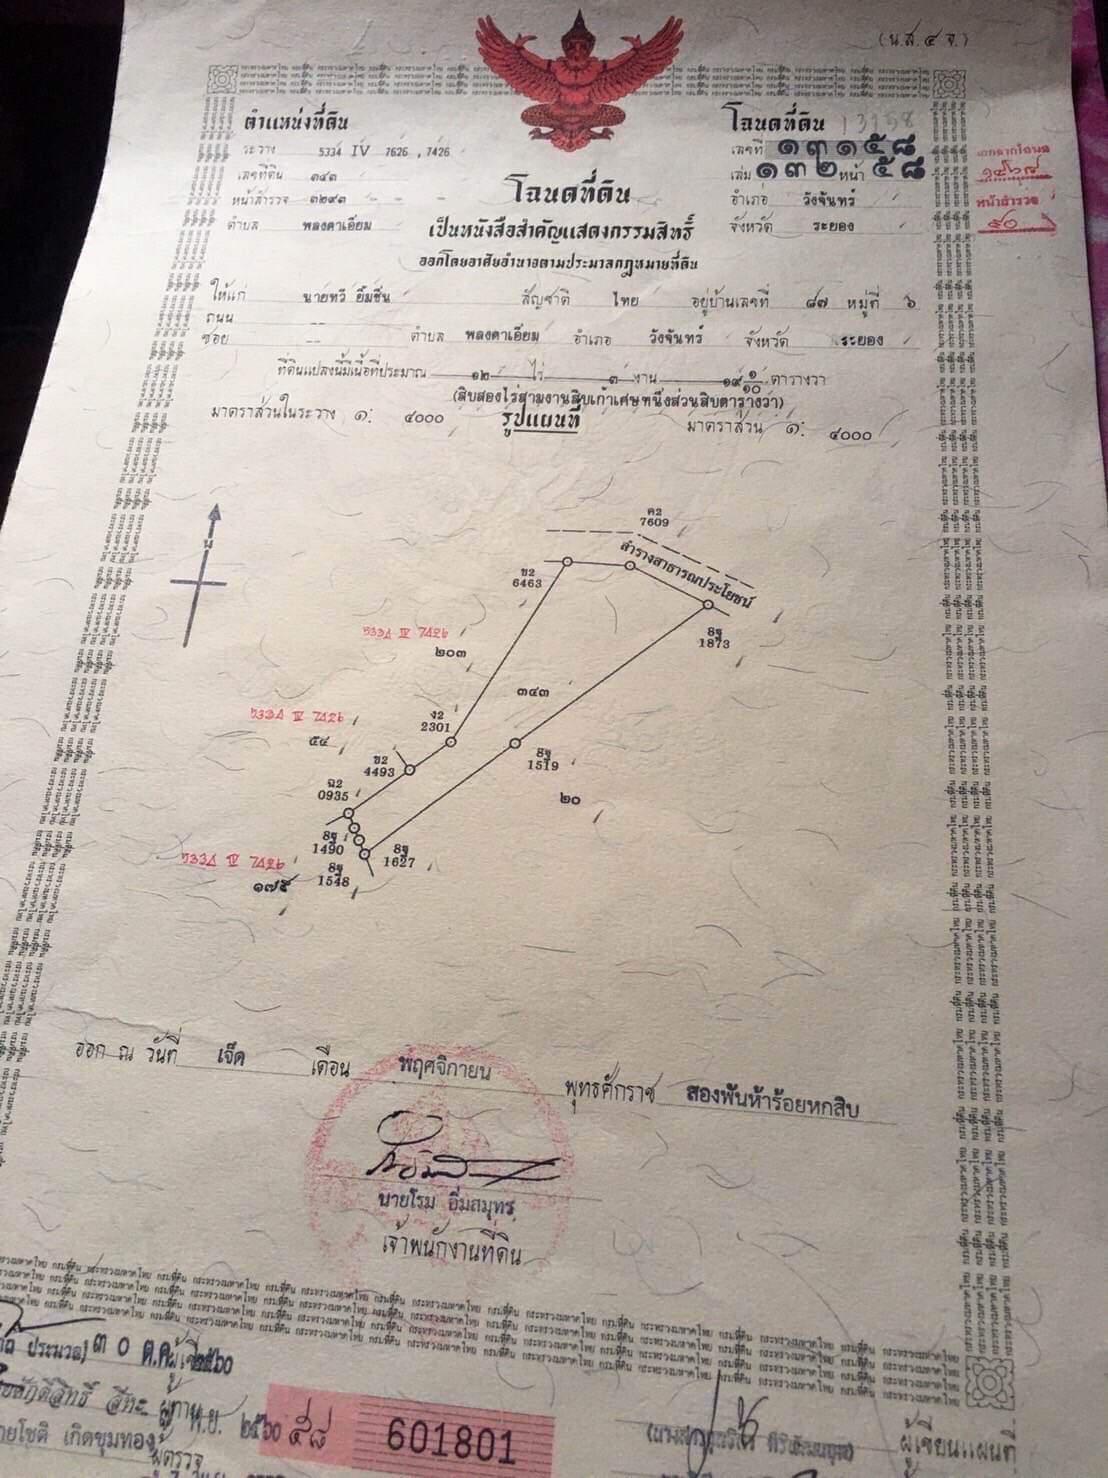 (น.ส.๔ จ.)
ตำแหน่งที่ดิน
ระวาง 5334 IV 7626 , 7426
เลขที่ดิน ๓๔๓
หน้าสำรวจ ๓๒๙๓
ตำบล พลงตาเอี่ยม
โฉนดที่ดิน 13158
เลขที่ ๑๓๑๕๘
เล่ม ๑๓๒ หน้า ๕๘
อำเภอ วังจันทร์
จังหวัด ระยอง
หน้าสำรวจ
โฉนดที่ดิน
เป็นหนังสือสำคัญแสดงกรรมสิทธิ์
ออกโดยอาศัยอำนาจตามประมวลกฎหมายที่ดิน
ให้แก่ นายทวี ยิ้มชื่น สัญชาติ ไทย อยู่บ้านเลขที่ ๘๗ หมู่ที่ ๖
ถนน --
ซอย -- ตำบล พลงตาเอี่ยม อำเภอ วังจันทร์ จังหวัด ระยอง
ที่ดินแปลงนี้มีเนื้อที่ประมาณ ๑๒ ไร่ ๓ งาน ๑๙ ๑/๑๐ ตารางวา
(สิบสองไร่สามงานสิบเก้าเศษหนึ่งส่วนสิบตารางวา)
มาตราส่วนในระวาง ๑: ๔๐๐๐ รูปแผนที่ มาตราส่วน ๑: ๔๐๐๐
น
ค2
7609
ทางสาธารณประโยชน์
ข2
6463
8ฐ
1873
5334 IV 7426
๒๐๓
๓๔๓
5334 IV 7426
๕๔
ง2
2301
ข2
4493
8ฐ
1519
ฉ2
0935
๒๐
8ฐ
1490
8ฐ
1627
5334 IV 7426
๑๗๙
8ฐ
1548
ออก ณ วันที่ เจ็ด เดือน พฤศจิกายน พุทธศักราช สองพันห้าร้อยหกสิบ
นายโรม อิ่มสมุทร
เจ้าพนักงานที่ดิน
ประมวล) ๓ ๐ ต.ค. ๒๕๖๐
พ.ย. ๒๕๖๐
๕๘ 601801
ายโชติ เกิดขุมทอง
ผู้ตรวจ
ผู้เขียนแผนที่